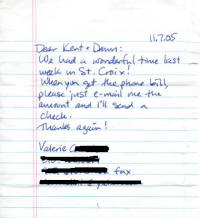 11.7.05
Dear Kent + Dawn:
We had a wonderful time last
week in St. Croix!
When you get the phone bill,
please just e-mail me the
amount and I'll send a
check.
Thanks again!
Valerie
fax